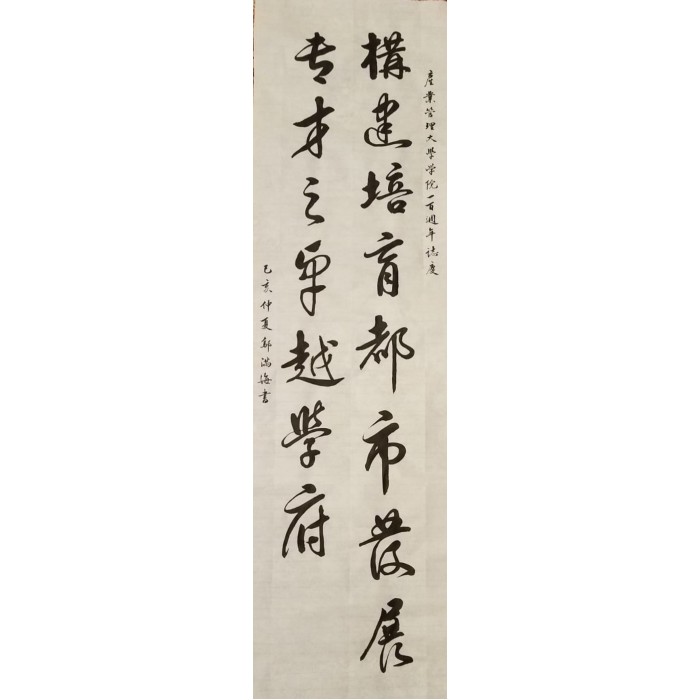 產業管理大學學院一百週年誌慶
構建培育都市發展
专才之卓越學府
己亥仲夏鄔滿海書